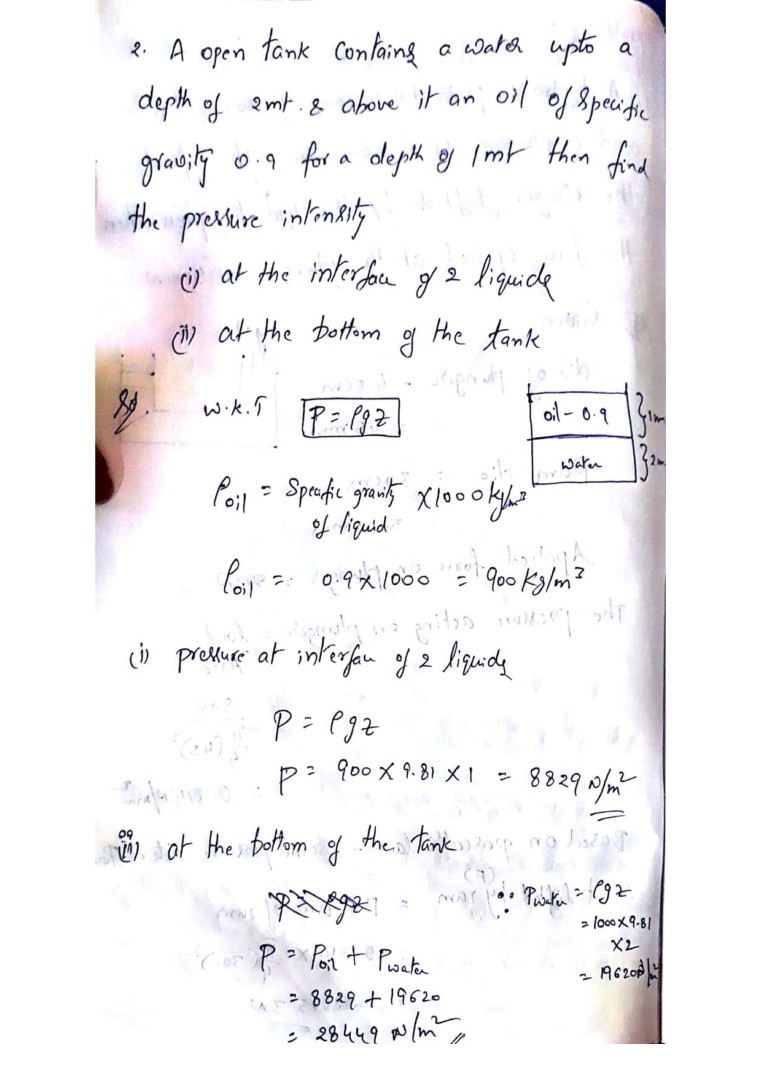 2. A open tank contains a water upto a
depth of 2mt. & above it an oil of Specific
gravity 0.9 for a depth of 1mt then find
the pressure intensity
(i) at the interface of 2 liquids
(ii) at the bottom of the tank
Sol. W.K.T P = ρgz
oil - 0.9 }1m
water }2m
ρoil = Specific gravity of liquid × 1000 kg/m³
ρoil = 0.9 × 1000 = 900 kg/m³
(i) pressure at interface of 2 liquids
P = ρgz
P = 900 × 9.81 × 1 = 8829 N/m²
(ii) at the bottom of the tank
P = ρgz
∴ Pwater = ρgz
= 1000 × 9.81
× 2
= 19620 N/m²
P = Poil + Pwater
= 8829 + 19620
= 28449 N/m²